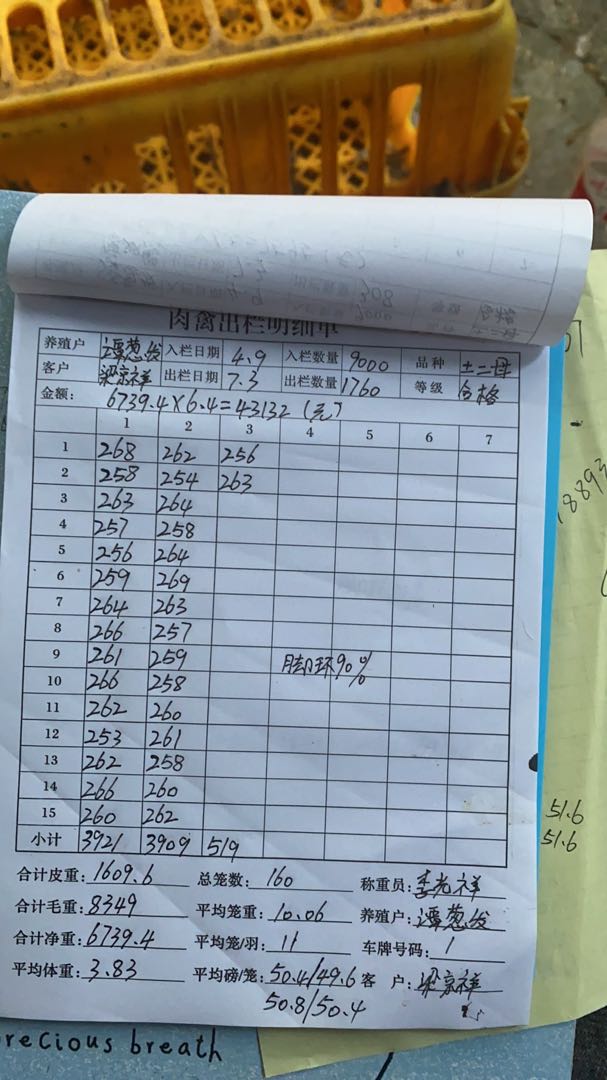 肉禽出栏明细单
养殖户 谭葱发 入栏日期 4.9 入栏数量 9000 品种 土二母
客户 梁京祥 出栏日期 7.3 出栏数量 1760 等级 合格
金额: 6739.4×6.4=43132(元)
1 2 3 4 5 6 7
1 268 262 256
2 258 254 263
3 263 264
4 257 258
5 256 264
6 259 269
7 264 263
8 266 257
9 261 259 脚环90%
10 266 258
11 262 260
12 253 261
13 262 258
14 266 260
15 260 262
小计 3921 3909 519
合计皮重: 1609.6 总笼数: 160 称重员: 李光祥
合计毛重: 8349 平均笼重: 10.06 养殖户: 谭葱发
合计净重: 6739.4 平均笼/羽: 11 车牌号码: 1
平均体重: 3.83 平均磅/笼: 50.4/49.6 客 户: 梁京祥
50.8/50.4
recious breath
18893
51.6
51.6